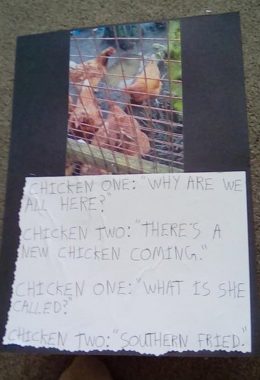 CHICKEN ONE: "WHY ARE WE
ALL HERE?"
CHICKEN TWO: "THERE'S A
NEW CHICKEN COMING."
CHICKEN ONE: "WHAT IS SHE
CALLED?"
CHICKEN TWO: "SOUTHERN FRIED."